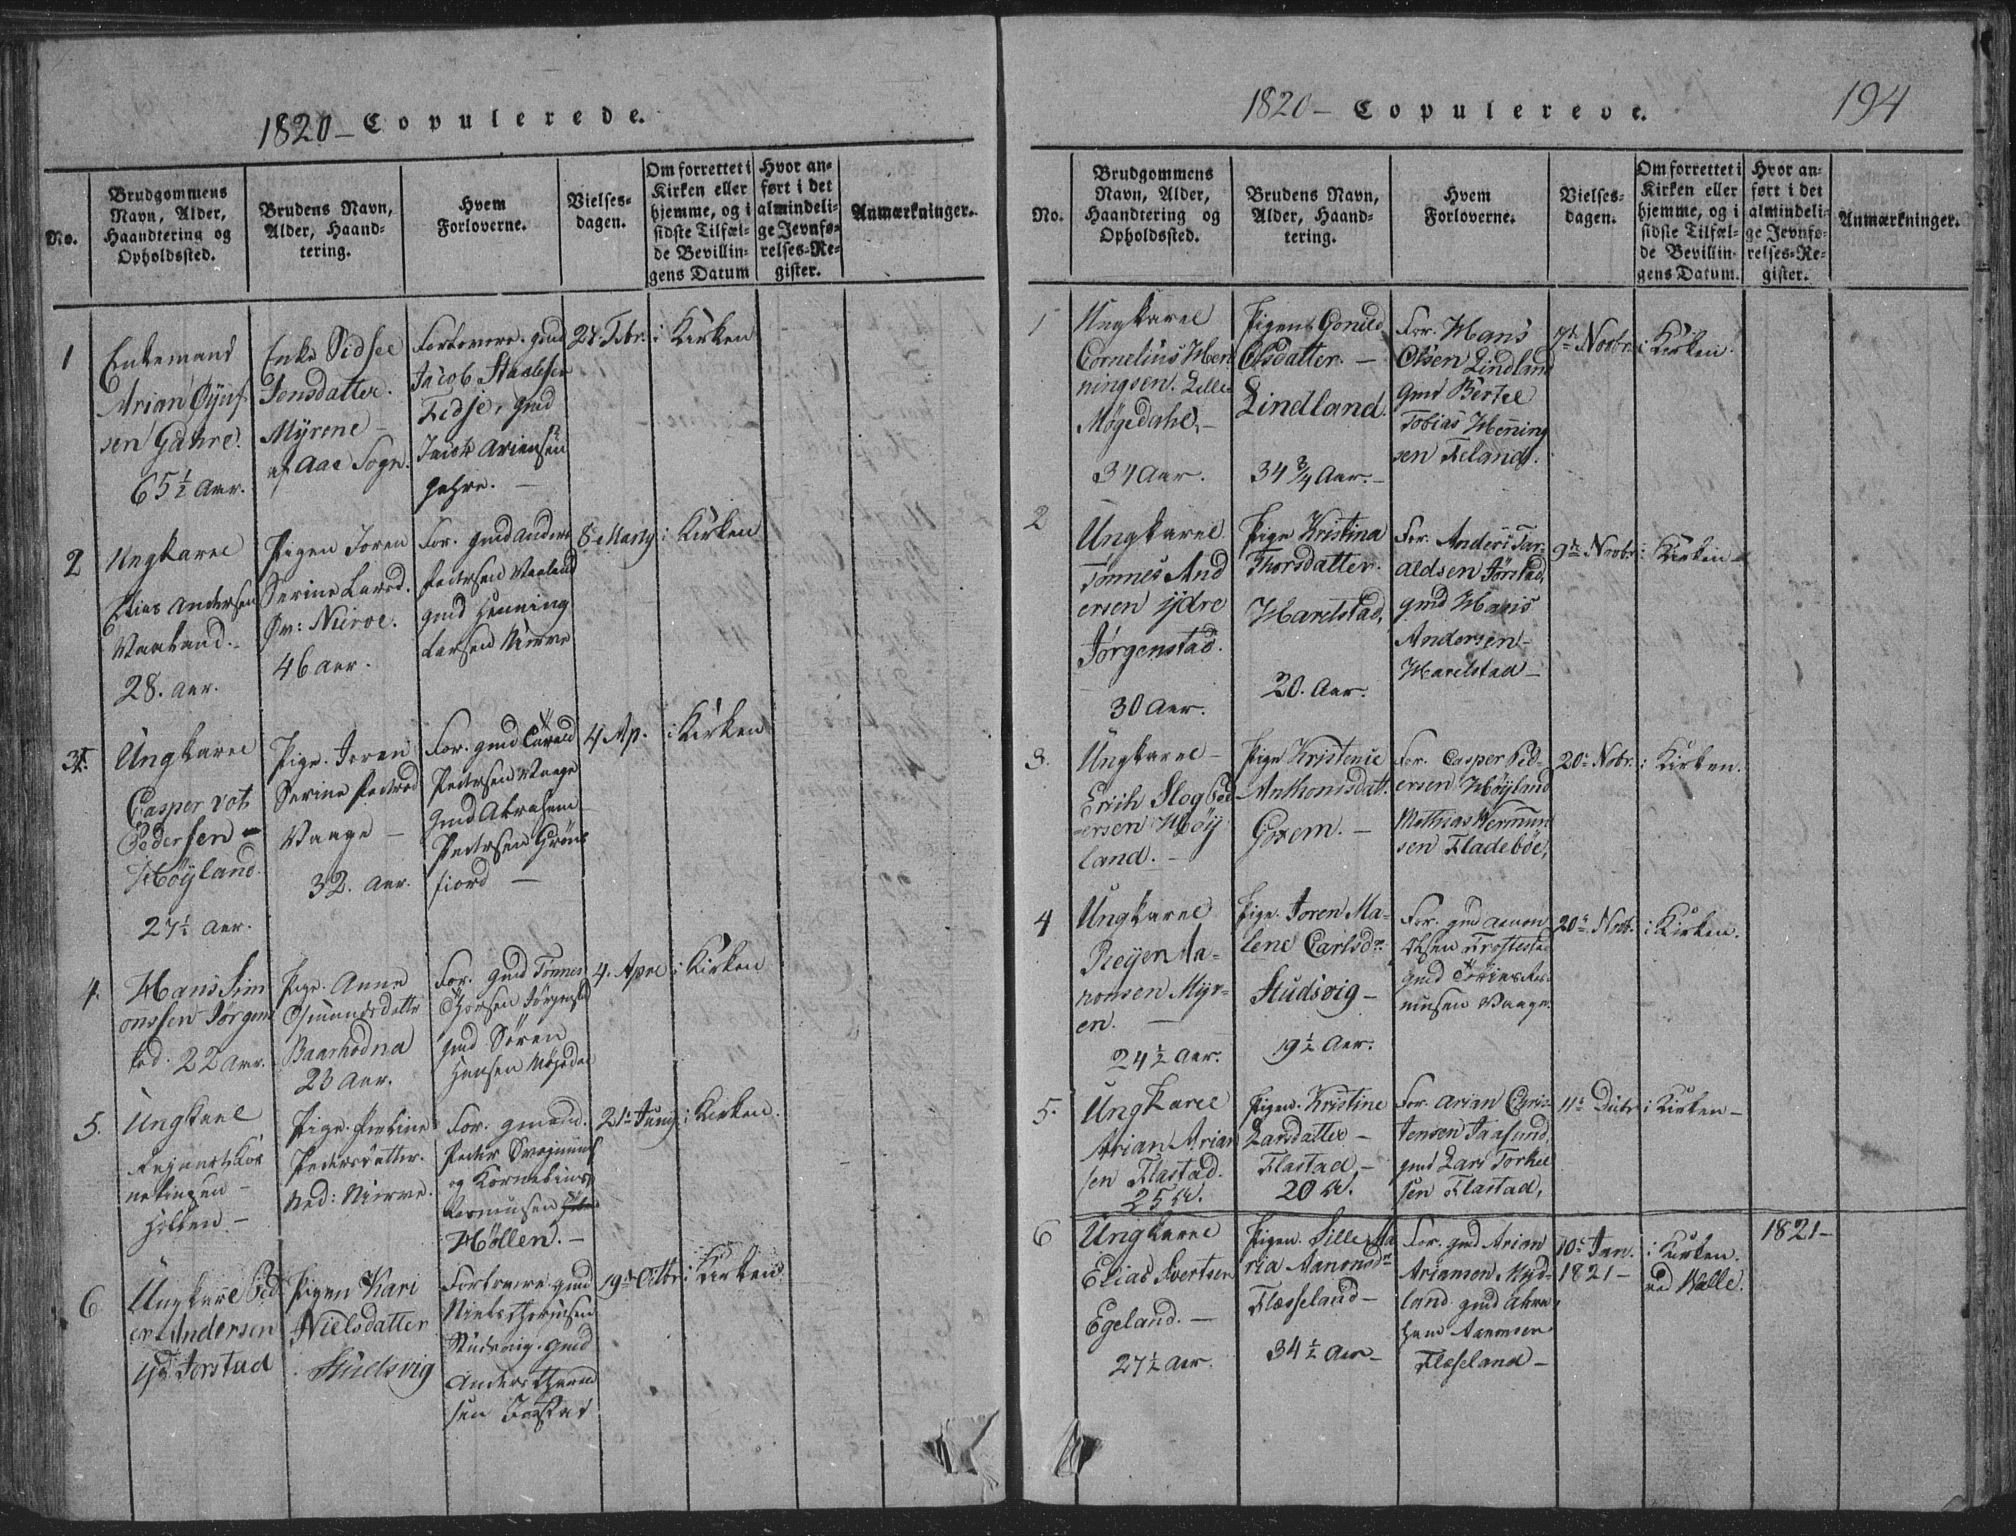 1820 – Copulerede.
No.
Brudgommens
Navn, Alder,
Haandtering og
Opholdssted.
Brudens Navn,
Alder, Haand-
tering.
Hvem
Forloverne.
Vielses-
dagen.
Om forrettet i
Kirken eller
hjemme, og i
sidste Tilfæl-
de Bevillin-
gens Datum
Hvor an-
ført i det
almindeli-
ge Jevnfø-
relses-Re-
gister.
Anmærkninger.
1
Enkemand
Arian
sen Gahre.
65 1/2 Aar.
Enke Sidsee
Jensdatter.
Myrene –
af Aae Sogn.
Forlovere. gmd
Jacob Staalesen
Fedse, gmd
Jacob Ariensen
Gahre. –
i Kirken
2
Ungkarl
Elias Andersen
Vaaland. –
28. Aar.
Pigen Joren
Serine Larsd.
Øv: Nirve.
46 Aar.
For. gmd Anders
Pedersen Vaaland
gmd Henning
Larsen Nirve
8 Marty
i Kirken
3.
Ungkarl
Casper
Pedersen –
Høyland
27 1/2 Aar.
Pige. Joren
Serine Pedersd
Vaage –
32. Aar.
For. gmd
Pedersen Vaage
gmd Abraham
Pedersen Grøns
fiord –
4 Ap.
i Kirken
4.
Hans Sim
onssen Jørgens
tad. 22 Aar.
Pige. Anne
Osmundsdatter
Baarhodna
23 Aar.
For. gmd Tønnes
Jørgenstad
gmd Søren
Hansen Møgedal
4. Aprl
i Kirken
5.
Ungkarl
Hollen –
Pige.
Pedersdatter.
Ned: Nirve.
For. gmænd.
Peder
og Kornelius
Rasmusen
Høllen. –
21 Juny
i Kirken.
6
Ungkarl Ped
er Andersen
Yd Jorstad
Pigen Kari
Nielsdatter
Studsvig
Forlovere gmd
Niels
Studsvig. gmd
Anders
sen Jorstad
19de Octbr.
i Kirken
1820 – Copulerede.
194
No.
Brudgommens
Navn, Alder,
Haandtering og
Opholdssted.
Brudens Navn,
Alder, Haand-
tering.
Hvem
Forloverne.
Vielses-
dagen.
Om forrettet i
Kirken eller
hjemme, og i
sidste Tilfæl-
de Bevillin-
gens Datum.
Hvor an-
ført i det
almindeli-
ge Jevnfø-
relses-Re-
gister.
Anmærkninger.
1
Ungkarl
Cornelius Hen
ningsen. Lille
Møgedahl, –
34 Aar.
Pigen Gonild
Olsdatter. –
Lindland.
34 3/4 Aar. –
For. Hans
Olsen Lindland
gmd Bertel
Tobias Hening
sen Feland.
7de Novbr.
i Kirken.
2
Ungkarl
Tønnes And
ersen ydre
Jørgenstad.
30 Aar.
Pige Kristina
Thorsdatter.
Harelstad,
20. Aar.
For. Anders Tar-
aldsen Jørstad,
gmd Hans
Andersen –
Harelstad –
9de Novbr.
i Kirken –
3.
Ungkarl –
Erich Slog Ped
ersen Høy
land. –
Pige Kristenie
Anthonisdatt.
Goxem. –
For. Casper Ped-
ersen Høyland
Mathias Hermun
sen Fladebøe,
20 Nobr.
i Kirken.
4
Ungkarl
Reyer Aa-
ronsen Myr-
en. –
24 1/2 Aar.
Pige. Joren Ma-
lene Carlsdr.
Studsvig –
19 1/2 Aar.
For. gmd Aanon
gmd
Vaage.
20 Novb.
i Kirken.
5.
Ungkarl
Arian Arian
sen Flastad.
25 Aar.
Pigen. Kristine
Larsdatter –
Flastad –
20 Aar.
For. Arian Chris-
tensen
gmd Lars Torkel
sen Flastad,
11
i Kirken –
6
Ungkarl
Elias Svertsen
Egeland. –
27 1/2 Aar.
Pigen. Sille Ma
ria Aanonsdr
Flesseland –
34 1/2 Aar –
For. gmd Arian
Ariansen Myd-
land gmd Abra
ham Aanonsen
Fleseland –
10 Jan.
1821 –
i Kirken.
ved Walle.
1821 –